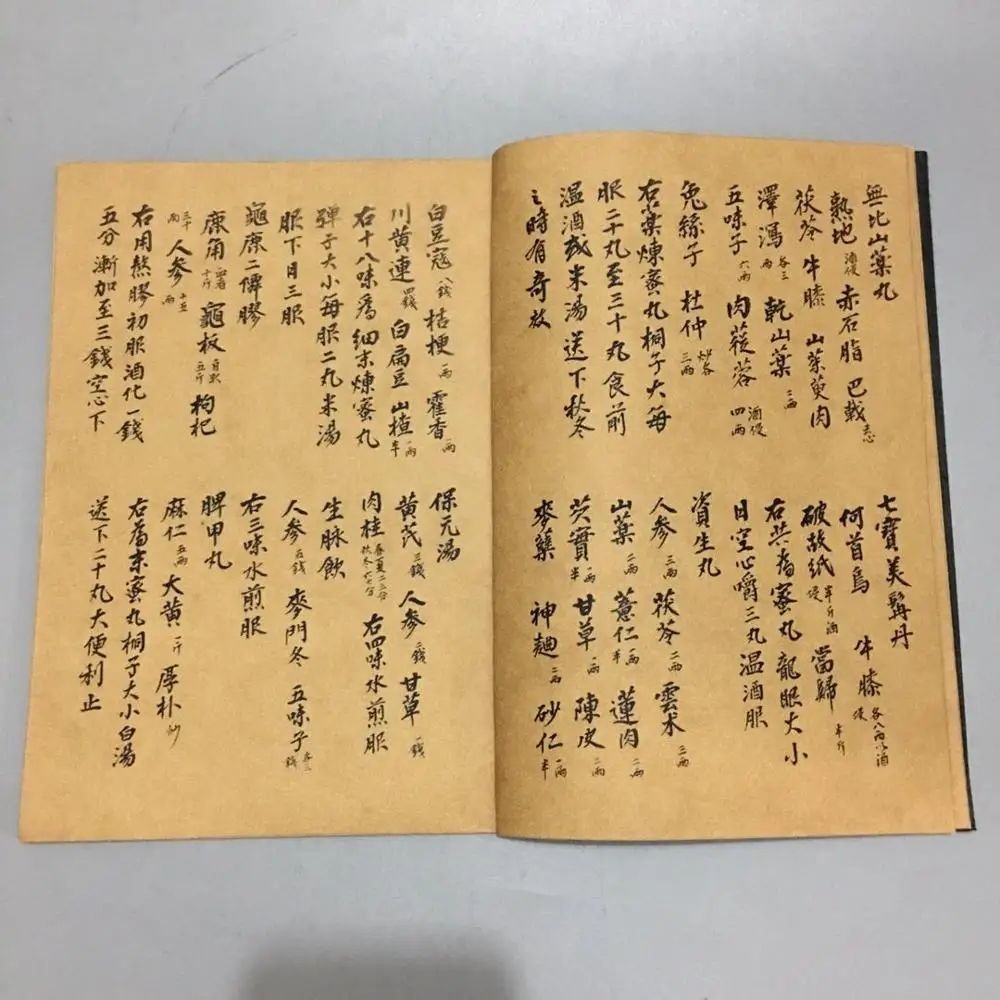 無比山藥丸
熟地 酒浸 赤石脂 巴戟 去心
茯苓 牛膝 山茱萸肉
澤瀉 各三兩 乾山藥 二兩
五味子 六兩 肉蓯蓉 四兩 酒浸
兔絲子 杜仲 炒各三兩
右藥煉蜜丸桐子大每
服二十丸至三十丸食前
溫酒或米湯送下秋冬
之時有奇放
七寶美髯丹
何首烏 牛膝 各八兩以酒浸 半斤
破故紙 半斤酒浸 當歸
右共為蜜丸龍眼大小
日空心嚼三丸溫酒服
資生丸
人參 三兩 茯苓 二兩 雲朮 三兩
山藥 二兩 薏仁 一兩半 蓮肉 二兩
芡實 一兩半 甘草 一兩 陳皮 二兩
麥櫱 神麯 二兩 砂仁 一兩半
白豆寇 八錢 桔梗 一兩 霍香 一兩
川黃連 四錢 白扁豆 山楂 一兩半
右十八味為細末煉蜜丸
彈子大小每服二丸米湯
服下日三服
龜鹿二僊膠
鹿角 十斤 龜板 五斤 枸杞
三十兩 人參 十五兩
右用熬膠初服酒化一錢
五分漸加至三錢空心下
保元湯
黃芪 三錢 人參 二錢 甘草 一錢
肉桂 春夏二三分秋冬六七分 右四味水煎服
生脉飲
人參 五錢 麥門冬 五味子 各三錢
右三味水煎服
脾甲丸
麻仁 五兩 大黃 一斤 厚朴 炒
右為末蜜丸桐子大小白湯
送下二十丸大便利止